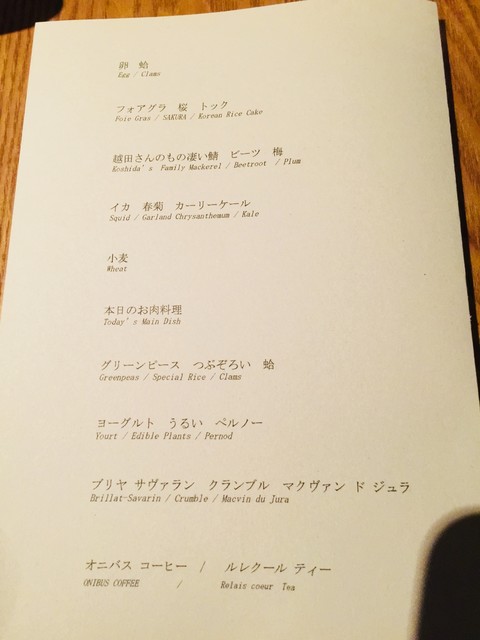 卵　蛤
Egg / Clams
フォアグラ　桜　トック
Foie Gras / SAKURA / Korean Rice Cake
越田さんのもの凄い鯖　ビーツ　梅
Koshida's Family Mackerel / Beetroot / Plum
イカ　春菊　カーリーケール
Squid / Garland Chrysanthemum / Kale
小麦
Wheat
本日のお肉料理
Today's Main Dish
グリーンピース　つぶぞろい　蛤
Greenpeas / Special Rice / Clams
ヨーグルト　うるい　ペルノー
Yourt / Edible Plants / Pernod
ブリヤ サヴァラン　クランブル　マクヴァン ド ジュラ
Brillat-Savarin / Crumble / Macvin du Jura
オニバス コーヒー　/　ルレクール ティー
ONIBUS COFFEE / Relais coeur Tea